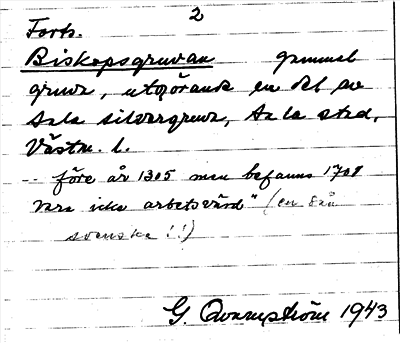 2
Forts.
Biskopsgruvan gammal
gruva, utgörande en del av
Sala silvergruva, Sala stad,
Västm. l.
-- före år 1305 men befanns 1708
vara icke arbetsvärd" (en
svenska !!)
G. Qvarnström 1943